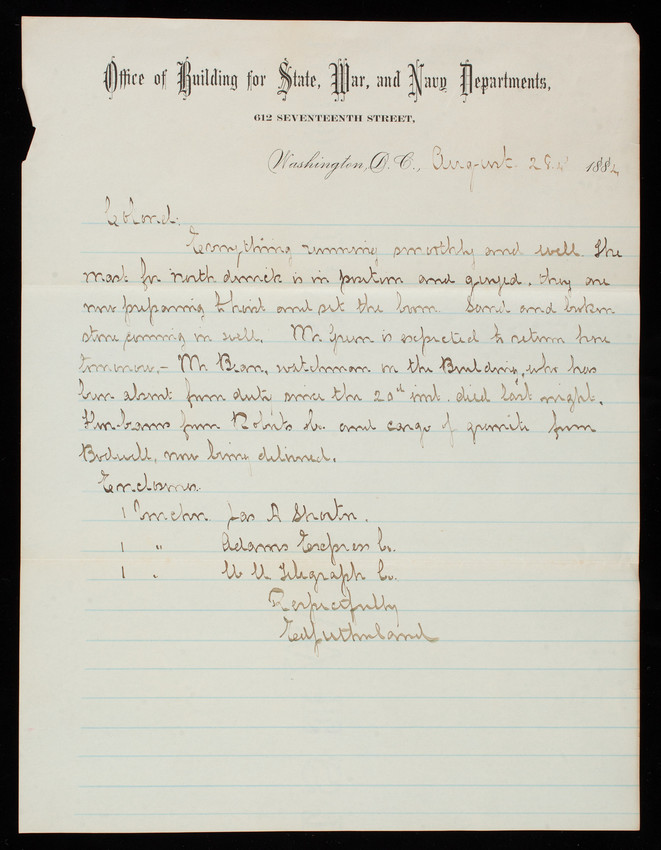 Office of Building for State, War, and Navy Departments,
612 SEVENTEENTH STREET,
Washington, D.C., August 28th 1884
Colonel:
Everything running smoothly and well. The
mast for north derrick is in position and guyed. They are
now preparing to hoist and set the boom. Sand and broken
stone coming in well. Mr Green is expected to return here
tomorrow.- Mr Bean, watchman on the Building, who has
been absent from duty since the 20th inst. died last night.
Iron beams from Roberts Co. and cargo of granite from
Bodwell, now being delivered.
Enclosures.
1 Voucher Jas A Shorter.
1 " Adams Express Co.
1 " W U Telegraph Co.
Respectfully
Ed Sutherland